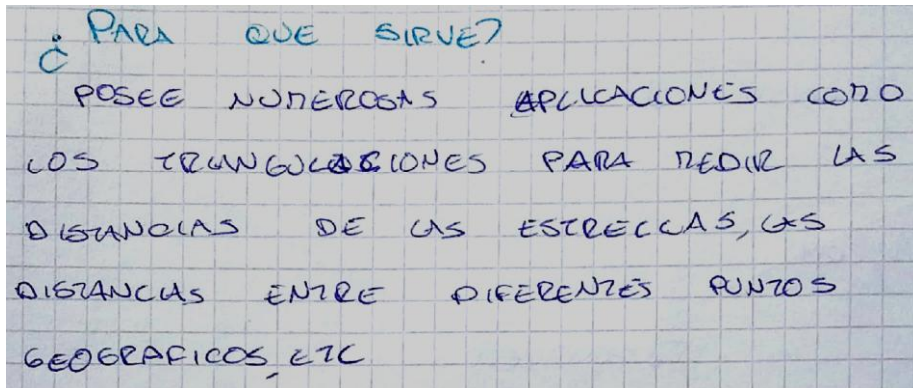 ¿PARA QUE SIRVE?
POSEE NUMEROSAS APLICACIONES COMO
LOS TRIANGULACIONES PARA MEDIR LAS
DISTANCIAS DE LAS ESTRELLAS, LAS
DISTANCIAS ENTRE DIFERENTES PUNTOS
GEOGRAFICOS, ETC